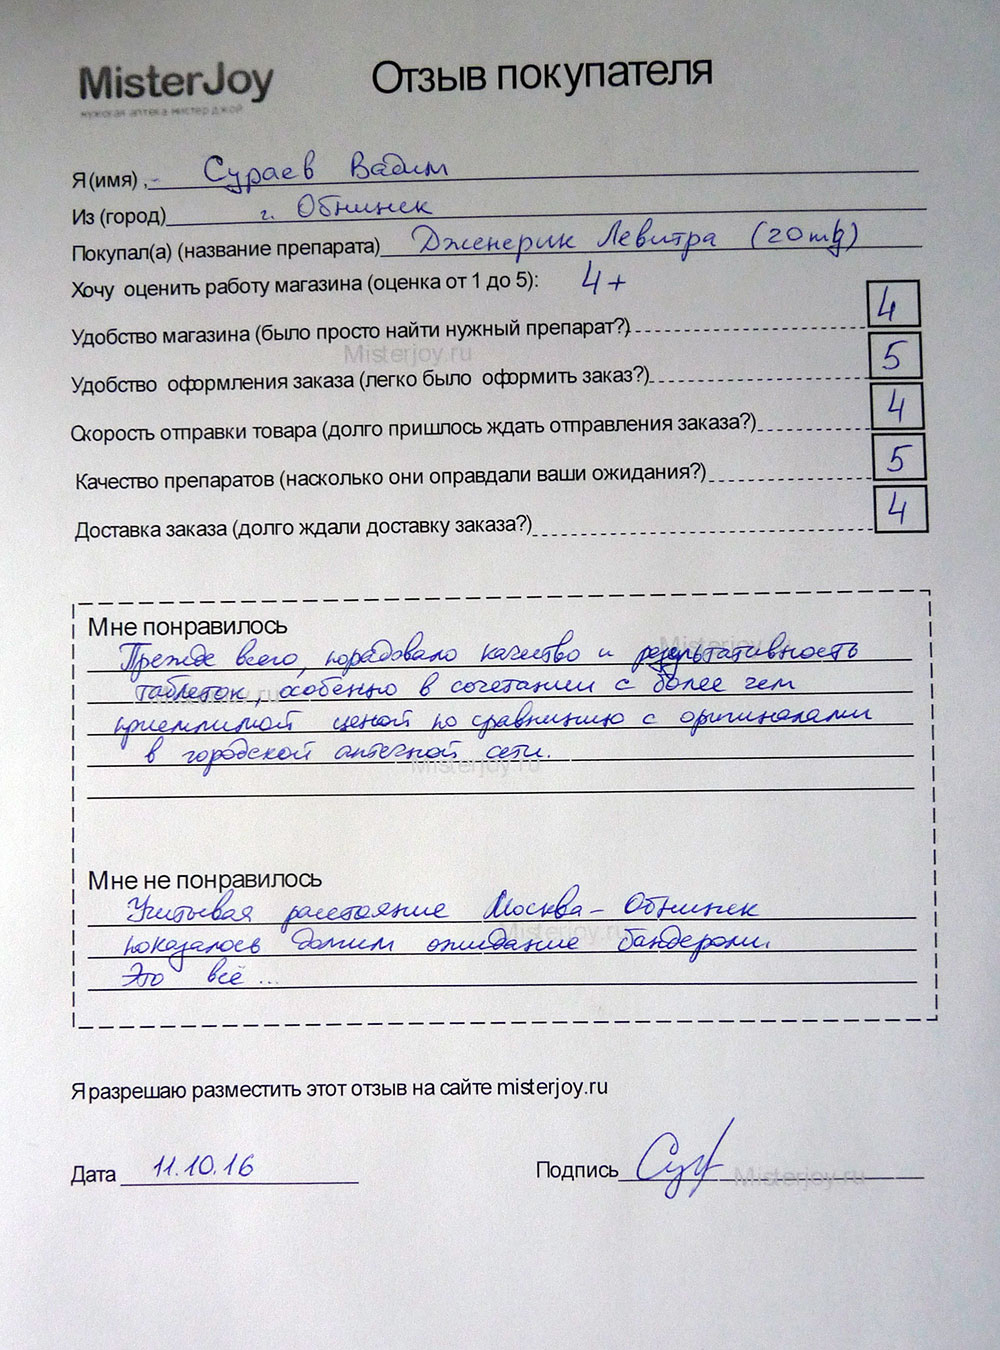 MisterJoy Отзыв покупателя
мужская аптека мистер джой
Я (имя) ,- Сураев Вадим
Из (город) г. Обнинск
Покупал(а) (название препарата) Дженерик Левитра (20mg)
Хочу оценить работу магазина (оценка от 1 до 5): 4+
Удобство магазина (было просто найти нужный препарат?) 4
Misterjoy.ru
Удобство оформления заказа (легко было оформить заказ?) 5
Скорость отправки товара (долго пришлось ждать отправления заказа?) 4
Качество препаратов (насколько они оправдали ваши ожидания?) 5
Доставка заказа (долго ждали доставку заказа?) 4
Мне понравилось
Misterjoy.ru
Прежде всего, порадовало качество и результативность
таблеток, особенно в сочетании с более чем
приемлимой ценой по сравнинию с оригиналами
в городской аптечной сети.
Misterjoy.ru
Мне не понравилось
Учитывая расстояние Москва – Обнинск
показалось долгим ожидание бандероли.
Это всё ...
Я разрешаю разместить этот отзыв на сайте misterjoy.ru
Дата 11.10.16 Подпись
Misterjoy.ru